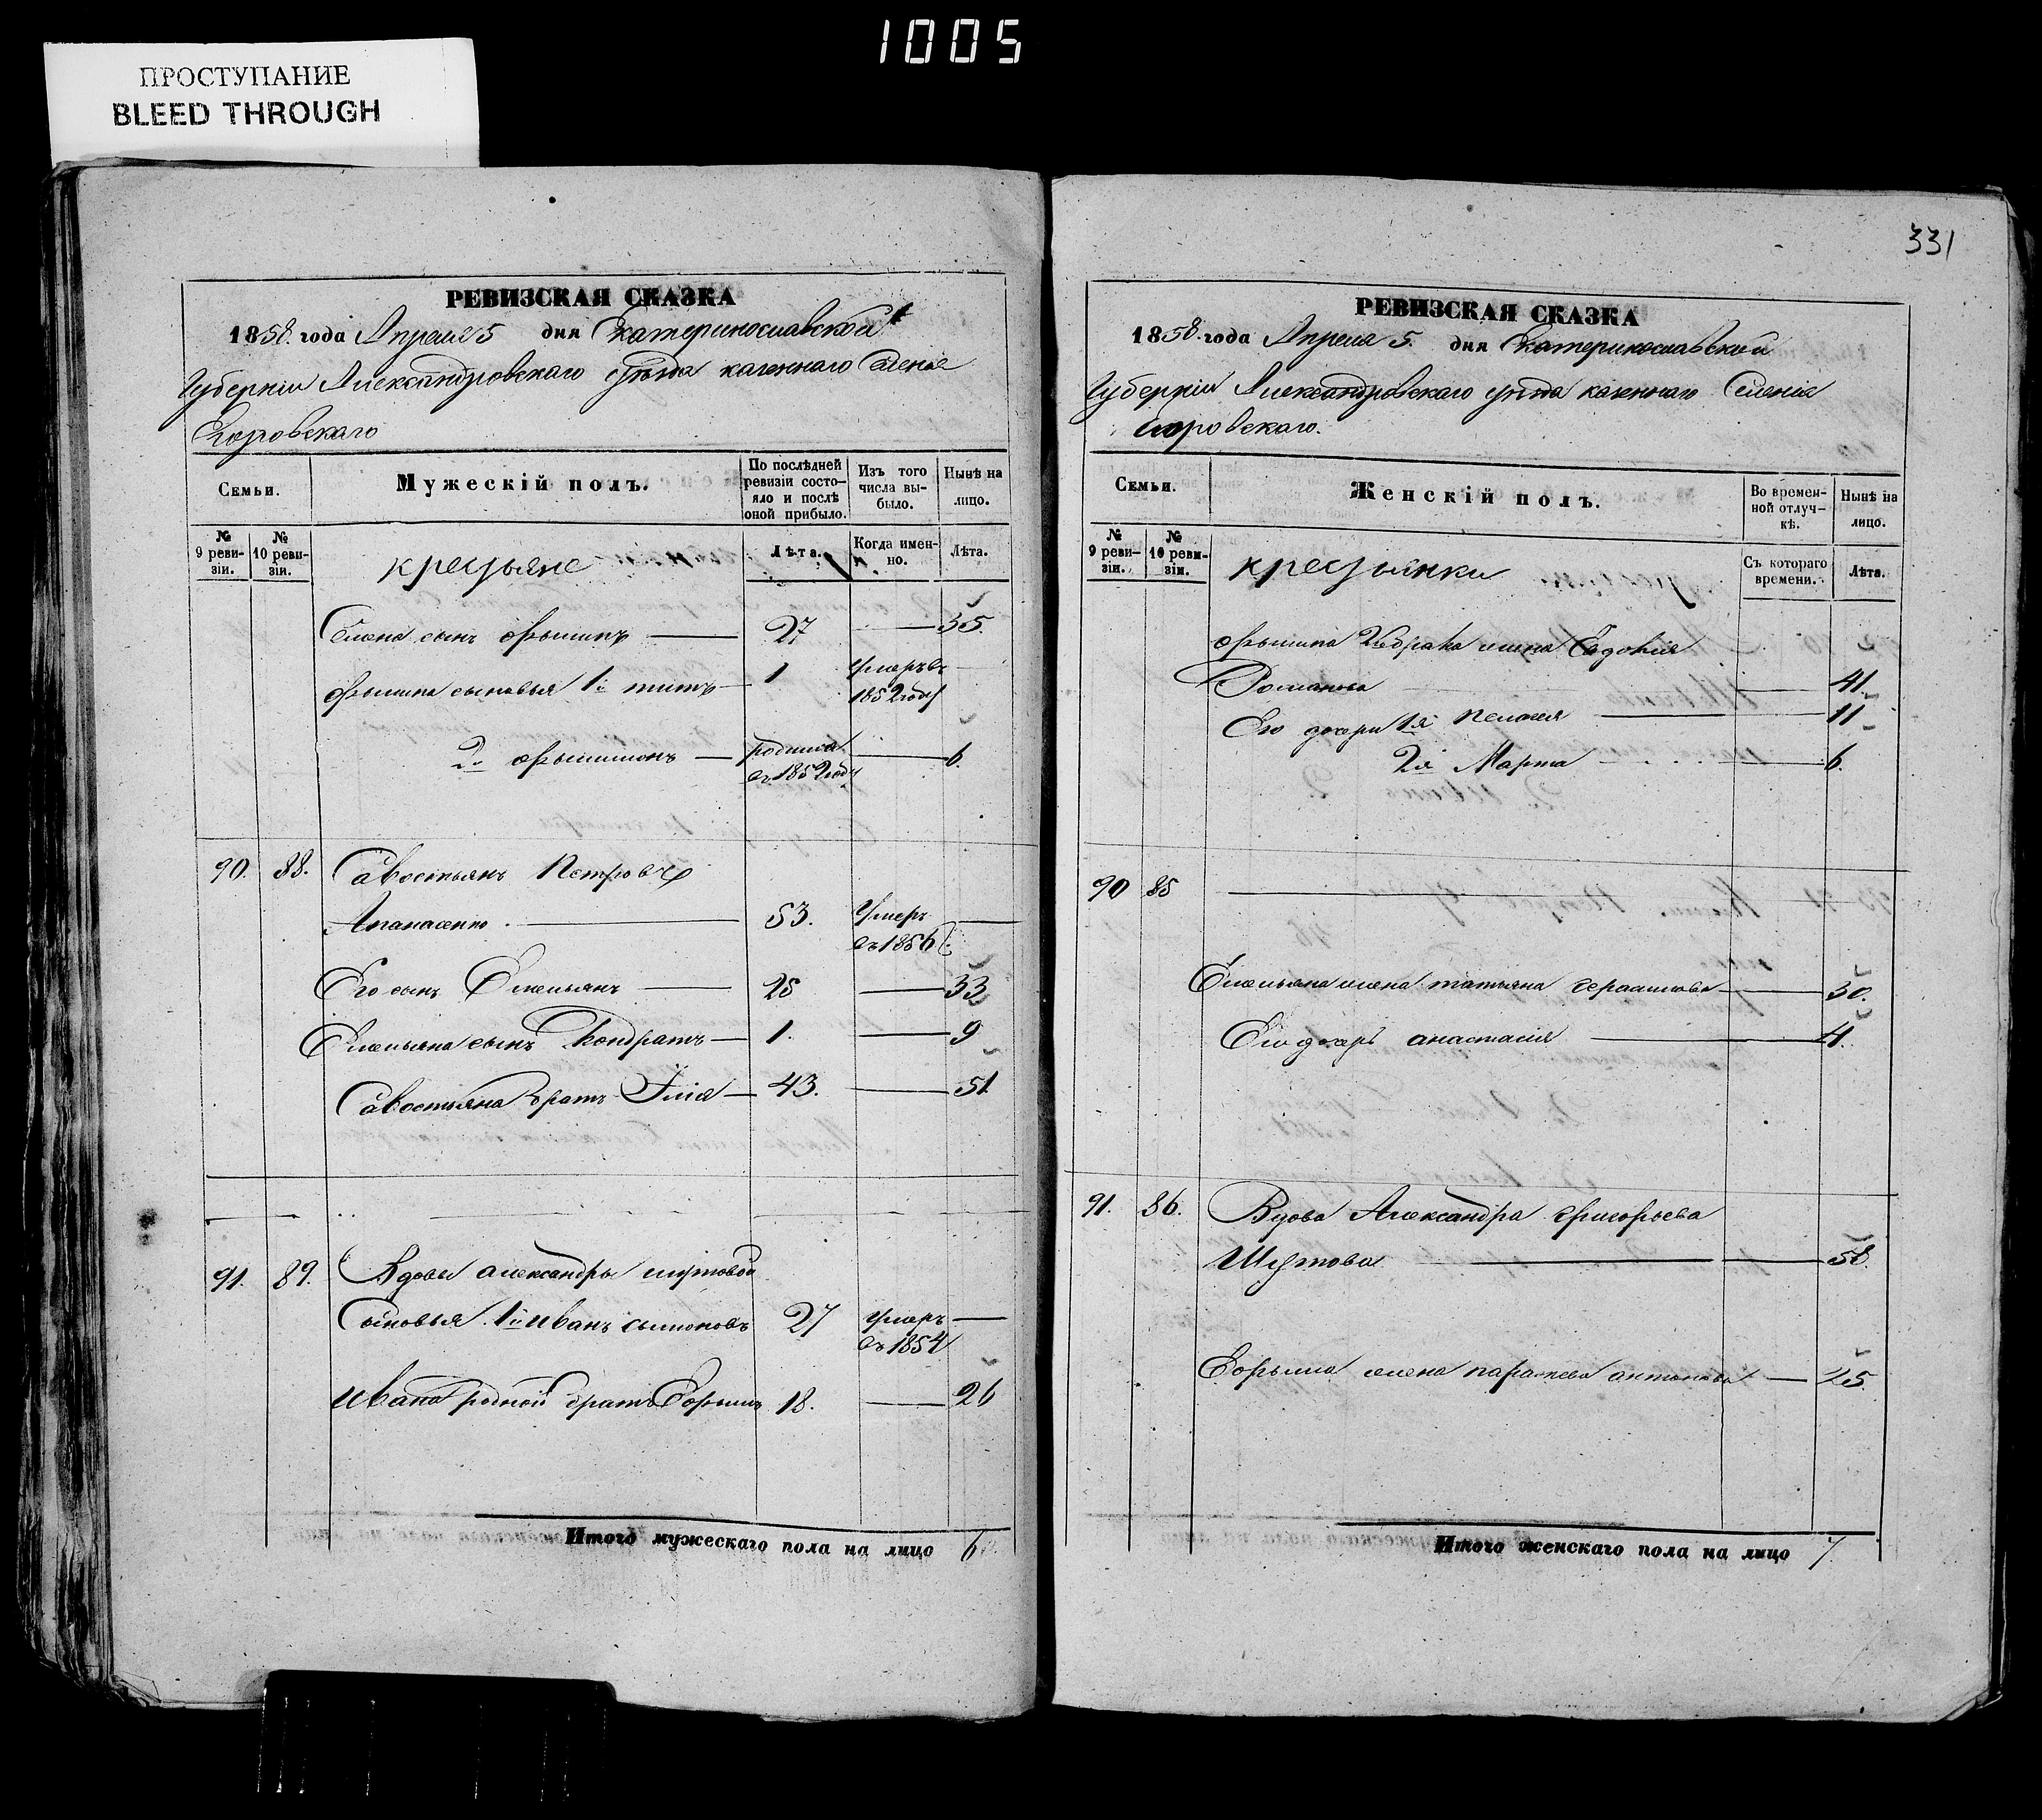 1005
ПРОСТУПАНИЕ
BLEED THROUGH
331
РЕВИЗСКАЯ СКАЗКА
1858. года Апреля 5 дня Екатеринославской
Губерніи Александровскаго уѣзда казеннаго Селенія
Семьи.
Мужескій полъ.
По послѣдней ревизіи состояло и послѣ оной прибыло.
Изъ того числа выбыло.
Нынѣ на лицо.
№ 9 ревизіи.
№ 10 ревизіи.
крестьяне
Лѣта.
Когда именно.
Лѣта.
сынъ 27 35.
сыновья 1й титъ 1 умеръ въ 1852 году
2й родился въ 1852 году 6.
90. 88. Савостьянъ Петровъ
Апанасенко 53. Умеръ въ 1856
Его сынъ Емельянъ 25 33
Емельяна сынъ Кондратъ 1. 9
Савостьяна братъ Илія 43. 51
91. 89. Вдовы александры шутовой
Сыновья 1й иванъ 27 умеръ въ 1854
ивана родной братъ 18. 26
Итого мужескаго пола на лицо 6
РЕВИЗСКАЯ СКАЗКА
1858. года Апреля 5. дня Екатеринославской
Губерніи Александровскаго уѣзда казеннаго Селенія
Семьи.
Женскій полъ.
Во временной отлучкѣ.
Нынѣ на лицо.
№ 9 ревизіи.
№ 10 ревизіи.
крестьянки
Съ котораго времени.
Лѣта.
жена Евдокія
Романова 41.
Его дочери 1я пелагея 11
2я Марта 6.
90 85
Емельяна жена татьяна 30.
Его дочерь анастасія 4.
91. 86. Вдова Александра григорьева
Шутова 58.
жена антонова 25.
Итого женскаго пола на лицо 7